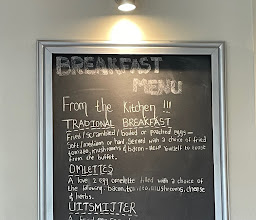 BREAKFAST
MENU
From the Kitchen !!!
TRADIONAL BREAKFAST
Fried / scrambled / boiled or poached eggs -
Soft / medium or hard. Served with a choice of fried
tomato, mushrooms & bacon - Help yourself to toast
from the buffet.
OMLETTES
A love 2 egg omellette filled with a choice of
the following: bacon, tomato, mushrooms, cheese
& herbs.
UITSMIJTER